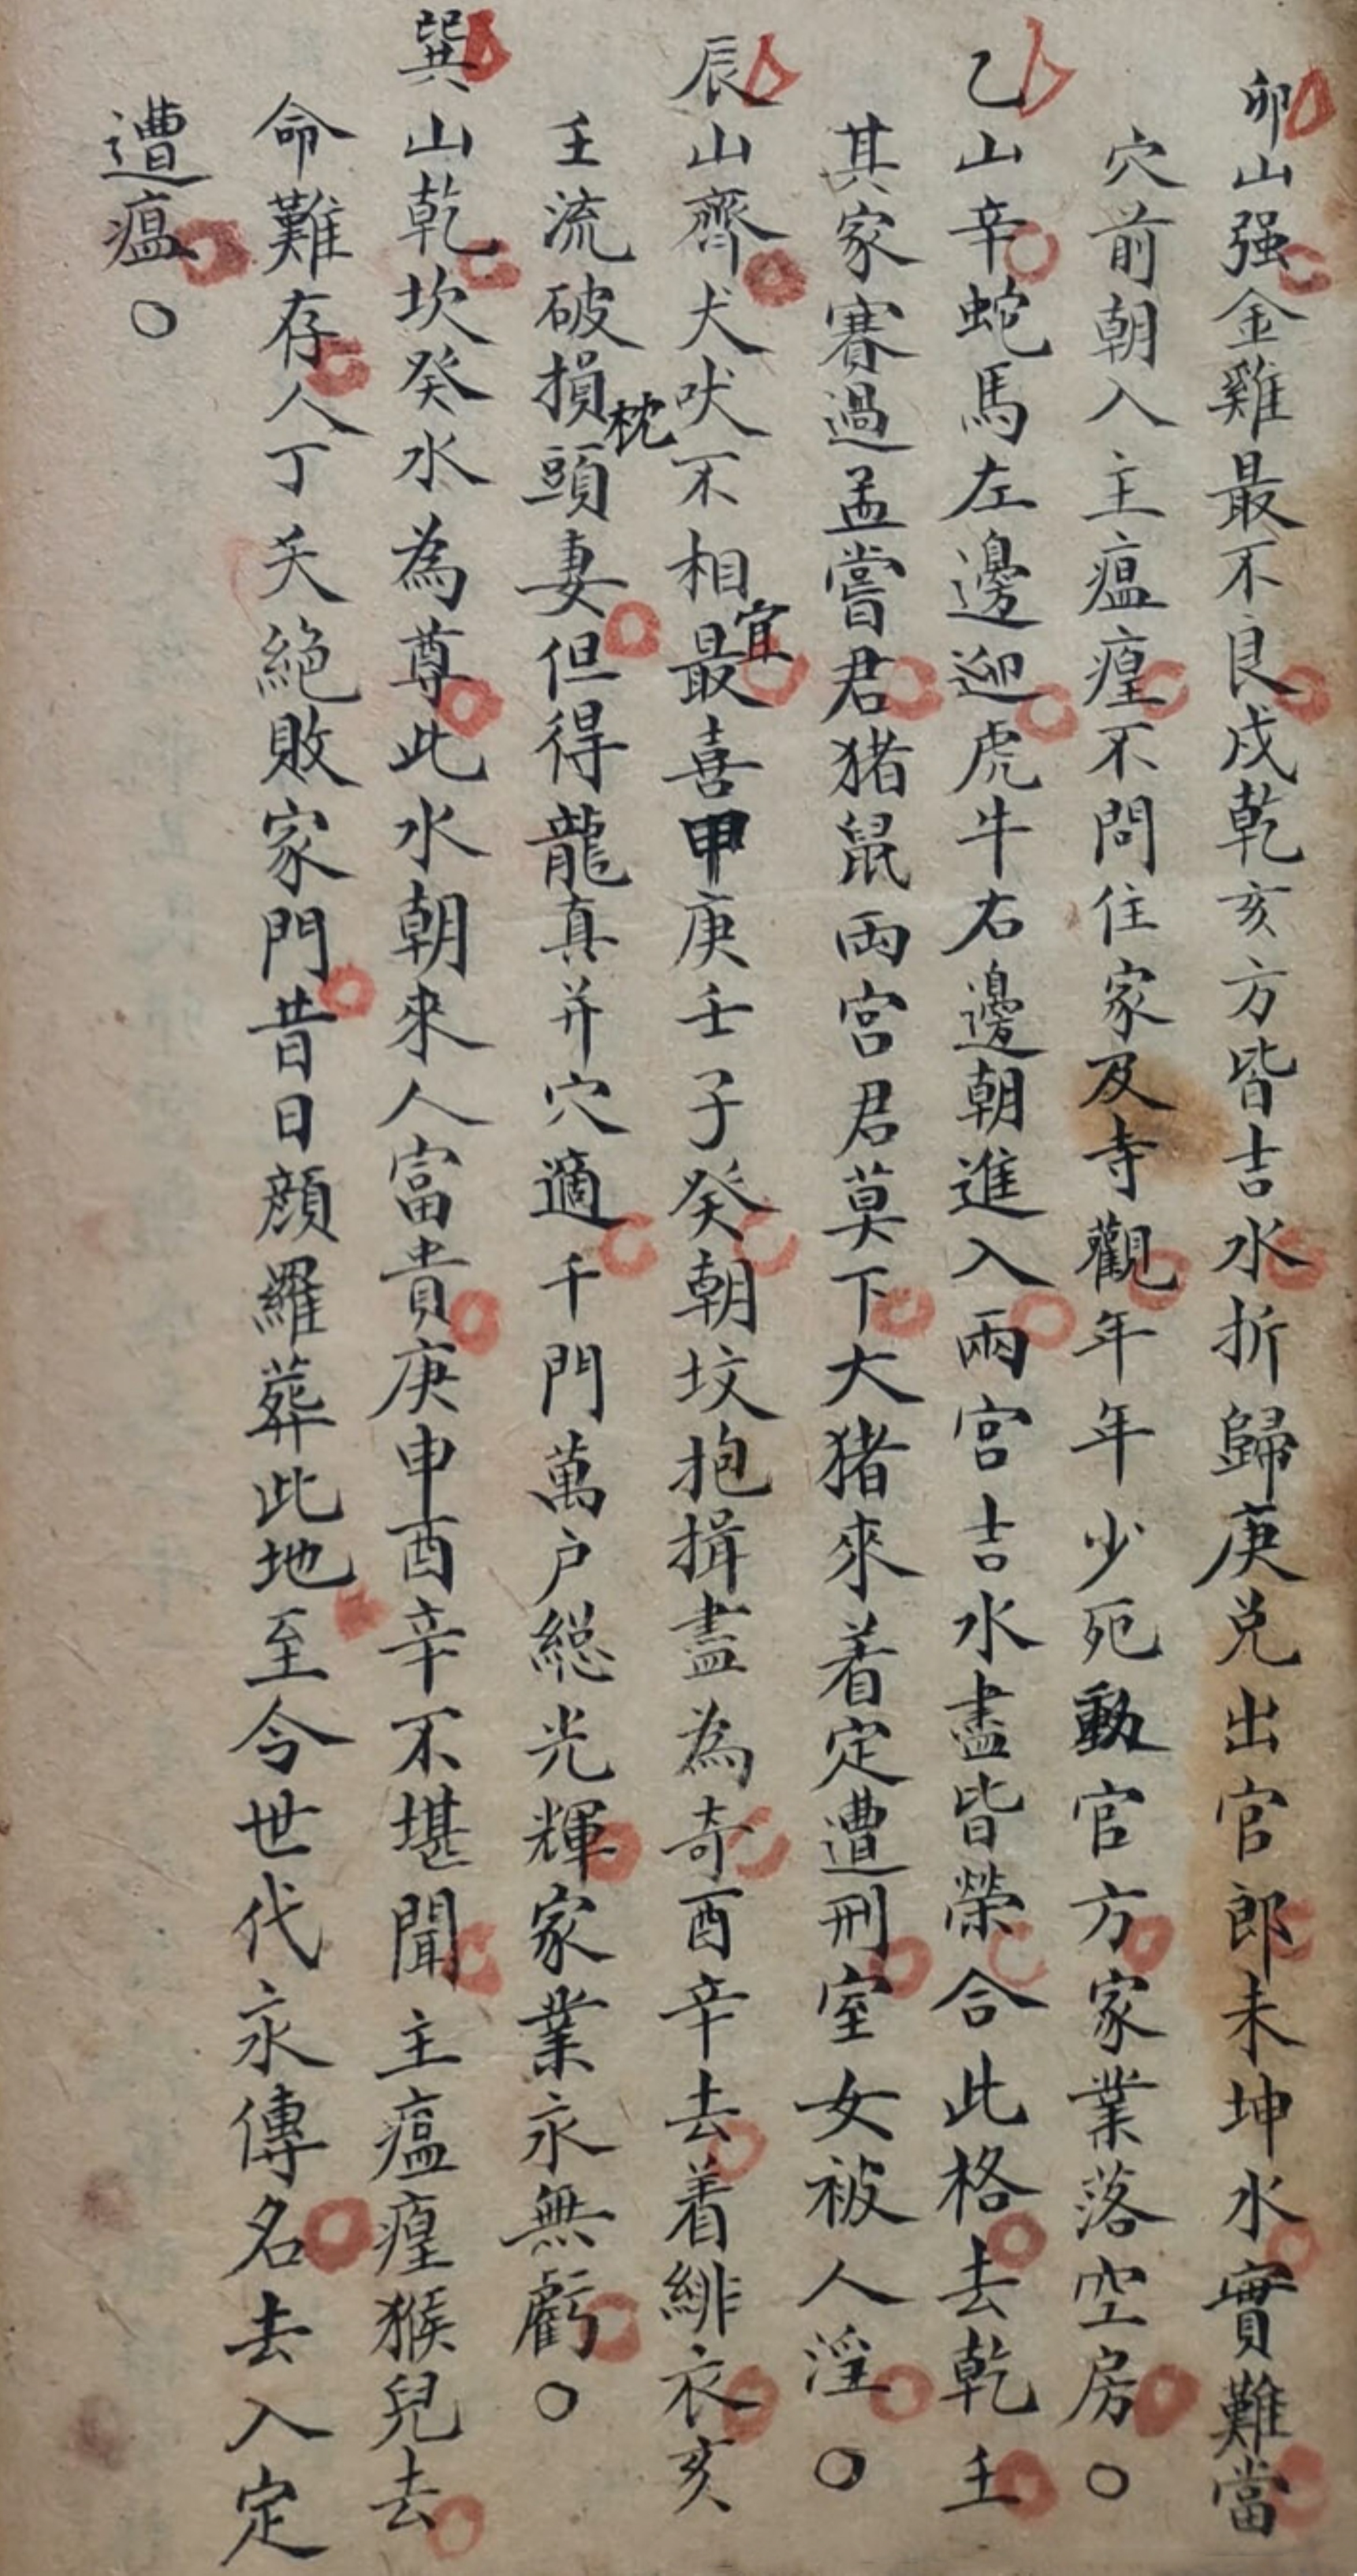 卯山强金雞最不良戍乾亥方皆吉水折歸庚兑出官郎未坤水實難當
穴前朝入主瘟㾮不問住家及寺觀年年少死動官方家業落空房○
乙山辛蛇馬左邊迎虎牛右邊朝進入兩宮吉水盡皆榮合此格去乾壬
其家賽過孟嘗君猪鼠兩宮君莫下大猪來着定遭刑室女被人淫○
辰山齊犬吠不相宜最喜甲庚壬子癸朝坟抱揖盡為奇酉辛去着緋衣亥
壬流破損枕頭妻但得龍真并穴適千門萬户総光輝家業永無虧○
巽山乾坎癸水為尊此水朝來人富貴庚申酉辛不堪聞主瘟㾮猴兒去
命難存人丁夭絕敗家門昔日顔羅葬此地至今世代永傳名去入定
遭瘟○